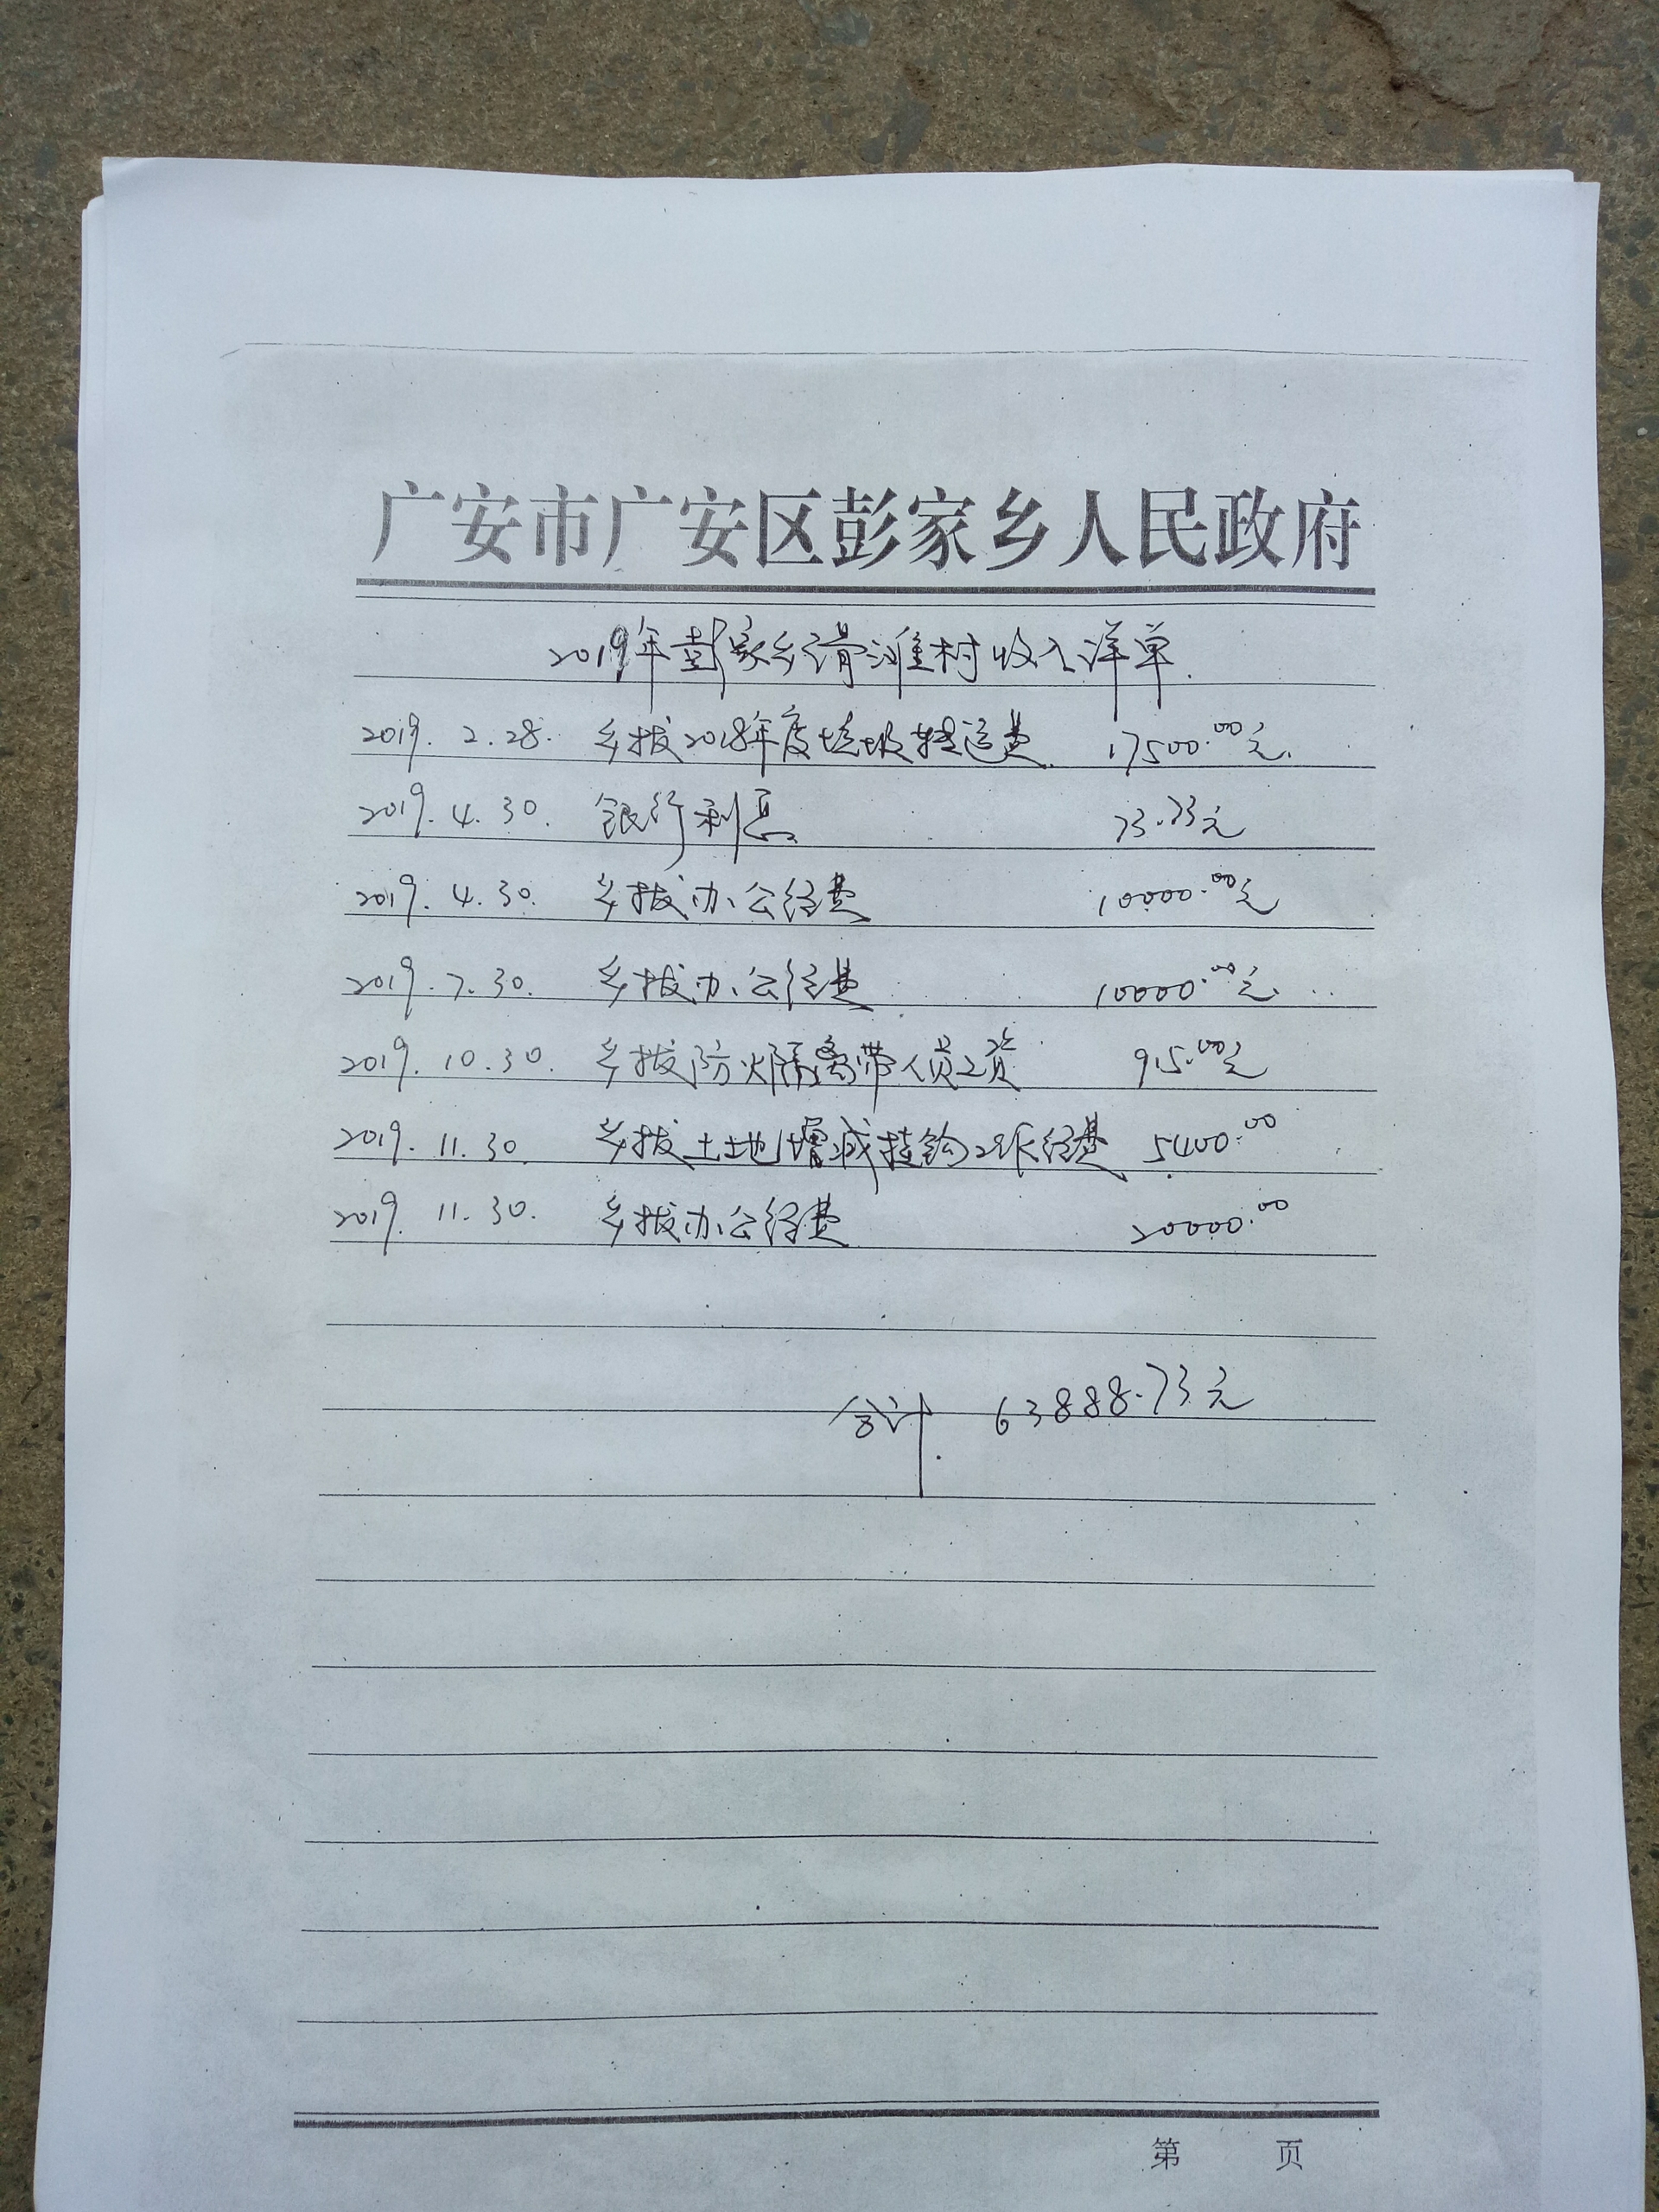 广安市广安区彭家乡人民政府
2019年彭家乡滑滩村收入详单.
2019. 2.28. 乡拨2018年度垃圾转运费. 17500.00元.
2019. 4. 30. 银行利息 73.73元
2019. 4. 30. 乡拨办公经费 10000.00元
2019. 7. 30. 乡拨办公经费 10000.00元.
2019. 10. 30. 乡拨防火隔离带人员工资 915.00元
2019. 11. 30. 乡拨土地增减挂钩工作经费 5400.00
2019. 11. 30. 乡拨办公经费 20000.00
合计 63888.73元
第 页